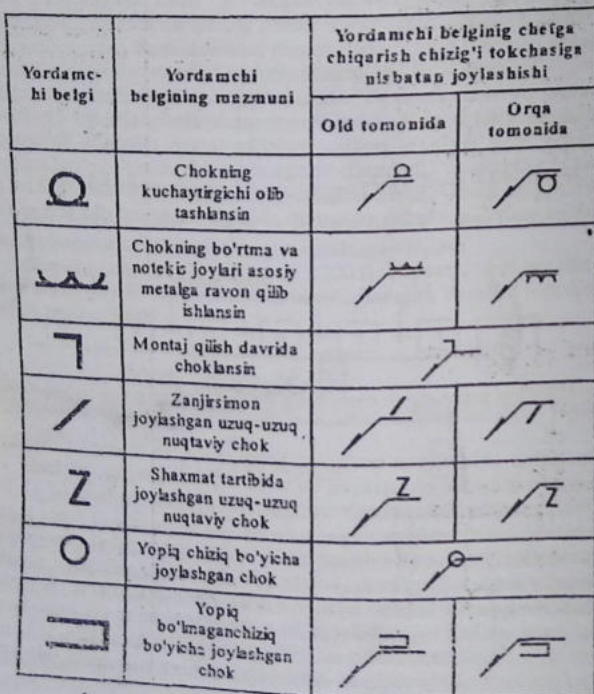 Yordamc-
hi belgi
Yordamchi
belgining mazmuni
Yordamchi belginig chetga
chiqarish chizig'i tokchasiga
nisbatan joylashishi
Old tomonida
Orqa
tomonida
Chokning
kuchaytirgichi olib
tashlansin
Chokning bo'rtma va
notekis joylari asosiy
metalga ravon qilib
ishlansin
Montaj qilish davrida
choklansin
Zanjirsimon
joylashgan uzuq-uzuq
nuqtaviy chok
Shaxmat tartibida
joylashgan uzuq-uzuq
nuqtaviy chok
Z
Z
Z
Yopiq chiziq bo'yicha
joylashgan chok
Yopiq
bo'lmaganchiziq
bo'yicha joylashgan
chok